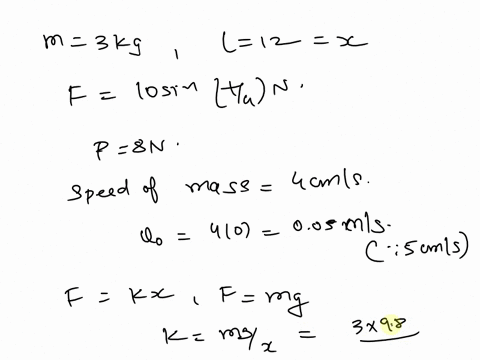 m = 3kg , l = 12 = x
F = 10 sin (t/4) N .
P = 8N .
Speed of mass = 4 cm/s .
u₀ = 4(0) = 0.05 m/s .
(∵ 5 cm/s)
F = Kx , F = mg
K = mg/x = 3 x 9.8